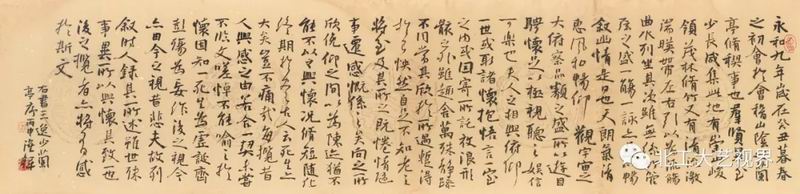 永和九年歲在癸丑暮春
之初會於會稽山陰之蘭
亭脩禊事也群賢畢至
少長咸集此地有崇山峻
領茂林脩竹又有清流激
湍暎帶左右引以為流觴
曲水列坐其次雖無絲竹管
弦之盛一觴一詠亦足以暢
叙幽情是日也天朗氣清
惠風和暢仰觀宇宙之
大俯察品類之盛所以遊目
騁懷足以極視聽之娛信
可樂也夫人之相與俯仰
一世或取諸懷抱悟言一室
之內或因寄所託放浪形
骸之外雖趣舍萬殊靜躁
不同當其欣於所遇暫得
於己快然自足不知老之
將至及其所之既惓情隨
事遷感慨係之矣向之所
欣俛仰之間以為陳迹猶不
能不以之興懷況脩短隨化
終期於盡古人云死生亦
大矣豈不痛哉每攬昔
人興感之由若合一契未嘗
不臨文嗟悼不能喻之於
懷固知一死生為虛誕齊
彭殤為妄作後之視今
亦由今之視昔悲夫故列
叙時人錄其所述雖世殊
事異所以興懷其致一也
後之攬者亦將有感
於斯文
右書王逸少蘭
亭序丙申陸
北工大艺视界